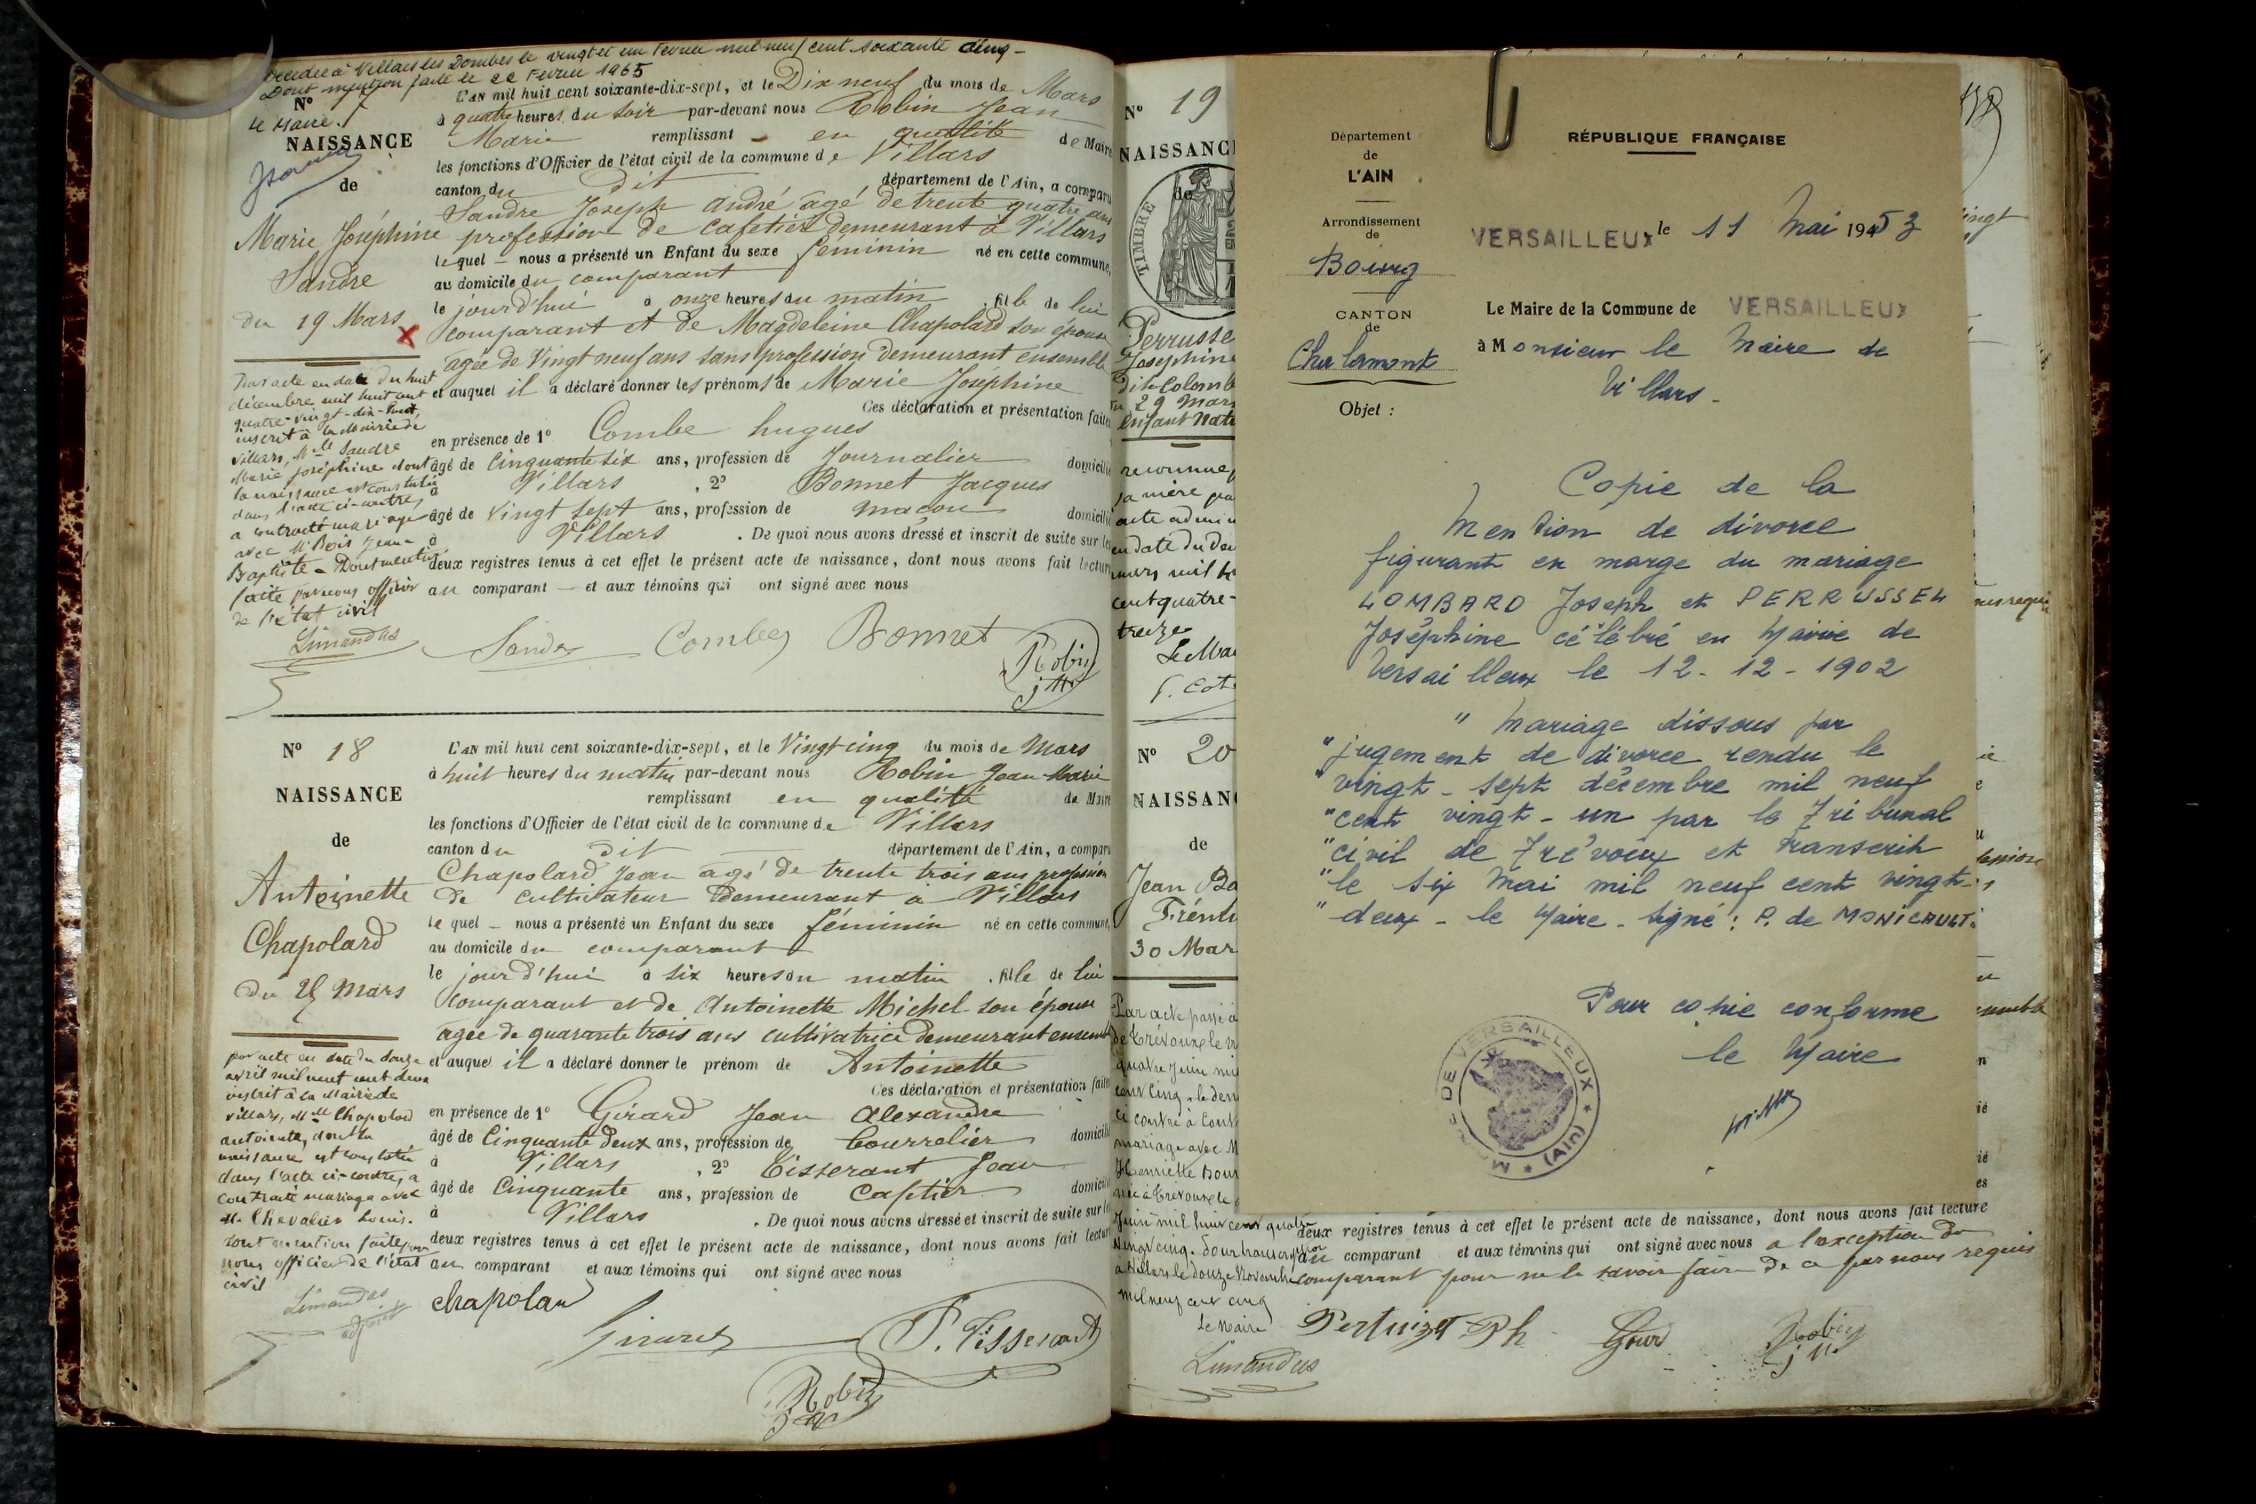 Décédée à Villars les Dombes le vingt et un Fevrier mil neuf cent soixante cinq -
Dont mention faite le 22 Fevrier 1965
Le Maire
N° 17
NAISSANCE
de
Marie Joséphine
Sandre
du 19 Mars
L'AN mil huit cent soixante-dix-sept, et le Dix neuf du mois de Mars
à quatre heures du soir par-devant nous Robin Jean
Marie remplissant - en qualité de Maire
les fonctions d'Officier de l'état civil de la commune de Villars
canton du dit département de l'Ain, a comparu
Sandre Joseph André âgé de trente quatre ans
profession de cafetier demeurant à Villars
lequel - nous a présenté un Enfant du sexe féminin né en cette commune,
au domicile du comparant
le jourd'hui à onze heures du matin, fille de lui
comparant et de Magdeleine Chapolard son épouse
agée de Vingt neuf ans sans profession demeurant ensemble
et auquel il a déclaré donner les prénoms de Marie Joséphine
Ces déclaration et présentation faites
en présence de 1° Combe hugues
âgé de Cinquante six ans, profession de Journalier domicilié
à Villars, 2° Bonnet Jacques
âgé de vingt sept ans, profession de maçon domicilié
à Villars. De quoi nous avons dressé et inscrit de suite sur les
deux registres tenus à cet effet le présent acte de naissance, dont nous avons fait lecture
au comparant - et aux témoins qui ont signé avec nous
Par acte en date du huit
décembre mil huit cent
quatre-vingt-dix-huit,
inscrit à la Mairie de
Villars, Mlle Sandre
Marie Joséphine dont
la naissance est constatée
dans l'acte ci-contre,
a contracté mariage
avec Mr Bois Jean-
Baptiste - Dont mention
faite par nous officier
de l'état civil
Limandas
Sandre Combe Bonnet
Robin
J M
N° 18
NAISSANCE
de
Antoinette
Chapolard
du 25 Mars
L'AN mil huit cent soixante-dix-sept, et le Vingt cinq du mois de Mars
à huit heures du matin par-devant nous Robin Jean Marie
remplissant en qualité de Maire
les fonctions d'Officier de l'état civil de la commune de Villars
canton du dit département de l'Ain, a comparu
Chapolard Jean agé de trente trois ans profession
de cultivateur Demeurant à Villars
lequel - nous a présenté un Enfant du sexe féminin né en cette commune,
au domicile du comparant
le jourd'hui à six heures du matin, fille de lui
comparant et de Antoinette Michel son épouse
agée de quarante trois ans cultivatrice demeurant ensemble
et auquel il a déclaré donner le prénom de Antoinette
Ces déclaration et présentation faites
en présence de 1° Girard Jean Alexandre
âgé de Cinquante deux ans, profession de Bourrelier domicilié
à Villars, 2° Tisserant Jean
âgé de Cinquante ans, profession de Cafetier domicilié
à Villars. De quoi nous avons dressé et inscrit de suite sur les
deux registres tenus à cet effet le présent acte de naissance, dont nous avons fait lecture
au comparant et aux témoins qui ont signé avec nous
par acte en date du douze
avril mil neuf cent deux
inscrit à la Mairie de
Villars, Mlle Chapolard
antoinette, dont la
naissance est constatée
dans l'acte ci-contre, a
contracté mariage avec
M. Chevalier Louis.
Dont mention faite par
nous officier de l'état
civil
Limandas
adjoint
chapolard
Girard J. Tisserant
Robin
N° 19
NAISSANCE
de
TIMBRE
Perrusse
Joséphine
Dite Colomb
du 29 Mars
Enfant Nat
reconnue
sa mère par
acte admi
en date du
mars mil h
cent quatre-
treize
Le Mai
N° 20
NAISSANC
de
Jean Ba
30 Mar
Par acte passé à
de Trévoux le
quatre Juin mil
cent cinq, le den
ci contre à contr
mariage avec M
Henriette Bour
née à Trévoux le
Juin mil huit cent quatre
vingt cinq. Dont transcription
à Villars le douze Novembre
mil neuf cent cinq
Le Maire
Limandas
Département
de
L'AIN
Arrondissement
de
Bourg
CANTON
de
Chalamont
Objet :
RÉPUBLIQUE FRANÇAISE
VERSAILLEUX le 11 Mai 1953
Le Maire de la Commune de VERSAILLEUX
à Monsieur le Maire de
Villars -
Copie de la
Mention de divorce
figurant en marge du mariage
LOMBARD Joseph et PERRUSSEL
Joséphine célébré en Mairie de
Versailleux le 12 - 12 - 1902
" Mariage dissous par
" jugement de divorce rendu le
" vingt - sept décembre mil neuf
" cent vingt - un par le Tribunal
" civil de Trévoux et transcrit
" le six Mai mil neuf cent vingt-
" deux - le Maire - Signé : P. de MONICAULT
Pour copie conforme
le Maire
MAIRIE DE VERSAILLEUX * (Ain) *
deux registres tenus à cet effet le présent acte de naissance, dont nous avons fait lecture
au comparant et aux témoins qui ont signé avec nous à l'exception du
comparant pour ne le savoir faire de ce par nous requis
Pertuizet Ph Gour Robin